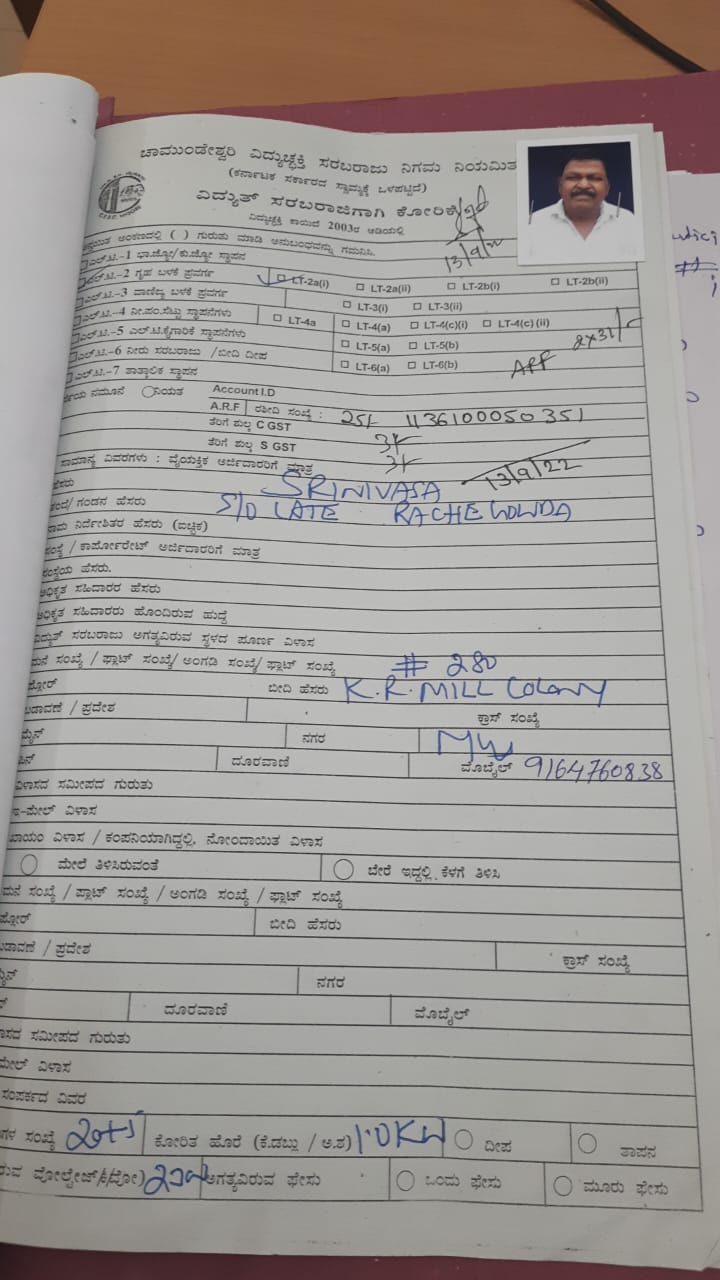 ಚಾಮುಂಡೇಶ್ವರಿ ವಿದ್ಯುಚ್ಛಕ್ತಿ ಸರಬರಾಜು ನಿಗಮ ನಿಯಮಿತ
(ಕರ್ನಾಟಕ ಸರ್ಕಾರದ ಸ್ವಾಮ್ಯಕ್ಕೆ ಒಳಪಟ್ಟಿದೆ)
ವಿದ್ಯುತ್ ಸರಬರಾಜಿಗಾಗಿ ಕೋರಿಕೆ
ವಿದ್ಯುಚ್ಛಕ್ತಿ ಕಾಯಿದೆ 2003ರ ಅಡಿಯಲ್ಲಿ
ಅಂಕಣದಲ್ಲಿ ( ) ಗುರುತು ಮಾಡಿ ಅನುಬಂಧವನ್ನು ಗಮನಿಸಿ.
13/9/22
ಎಲ್.ಟಿ.-1 ಭಾ.ಜ್ಯೋ/ಕು.ಜ್ಯೋ ಸ್ಥಾಪನ
-2 ಗೃಹ ಬಳಕೆ ಪ್ರವರ್ಗ LT-2a(i) LT-2a(ii) LT-2b(i) LT-2b(ii)
ಎಲ್.ಟಿ.-3 ವಾಣಿಜ್ಯ ಬಳಕೆ ಪ್ರವರ್ಗ LT-3(i) LT-3(ii)
ಎಲ್.ಟಿ.-4 ನೀ.ಪಂ.ಸೆಟ್ಟು ಸ್ಥಾಪನೆಗಳು LT-4a LT-4(a) LT-4(c)(i) LT-4(c)(ii)
ಎಲ್.ಟಿ.-5 ಎಲ್.ಟಿ.ಕೈಗಾರಿಕೆ ಸ್ಥಾಪನೆಗಳು LT-5(a) LT-5(b)
ಎಲ್.ಟಿ.-6 ನೀರು ಸರಬರಾಜು /ಬೀದಿ ದೀಪ LT-6(a) LT-6(b)
ಎಲ್.ಟಿ.-7 ತಾತ್ಕಾಲಿಕ ಸ್ಥಾಪನ
ನಮೂನೆ ನಿಯತ Account I.D
A.R.F ರಶೀದಿ ಸಂಖ್ಯೆ : 25/- 1136100050351
ತೆರಿಗೆ ಶುಲ್ಕ C GST 3/-
ತೆರಿಗೆ ಶುಲ್ಕ S GST 3/-
ಸಾಮಾನ್ಯ ವಿವರಗಳು : ವೈಯಕ್ತಿಕ ಅರ್ಜಿದಾರರಿಗೆ ಮಾತ್ರ 13/9/22
ಹೆಸರು SRINIVASA
ಗಂಡನ ಹೆಸರು S/O LATE RACHEGOWDA
ನಿರ್ದೇಶಿತರ ಹೆಸರು (ಐಚ್ಛಿಕ)
ಸಂಸ್ಥೆ / ಕಾರ್ಪೊರೇಟ್ ಅರ್ಜಿದಾರರಿಗೆ ಮಾತ್ರ
ಸಂಸ್ಥೆಯ ಹೆಸರು.
ಅಧಿಕೃತ ಸಹಿದಾರರ ಹೆಸರು
ಅಧಿಕೃತ ಸಹಿದಾರರು ಹೊಂದಿರುವ ಹುದ್ದೆ
ವಿದ್ಯುತ್ ಸರಬರಾಜು ಅಗತ್ಯವಿರುವ ಸ್ಥಳದ ಪೂರ್ಣ ವಿಳಾಸ
ಮನೆ ಸಂಖ್ಯೆ / ಪ್ಲಾಟ್ ಸಂಖ್ಯೆ/ ಅಂಗಡಿ ಸಂಖ್ಯೆ/ ಫ್ಲಾಟ್ ಸಂಖ್ಯೆ # 280
ಬೀದಿ ಹೆಸರು K.R. MILL Colony
ಬಡಾವಣೆ / ಪ್ರದೇಶ ಕ್ರಾಸ್ ಸಂಖ್ಯೆ
ನಗರ
ದೂರವಾಣಿ ಮೊಬೈಲ್ 9164760838
ವಿಳಾಸದ ಸಮೀಪದ ಗುರುತು
ಇ-ಮೇಲ್ ವಿಳಾಸ
ಖಾಯಂ ವಿಳಾಸ / ಕಂಪನಿಯಾಗಿದ್ದಲ್ಲಿ, ನೋಂದಾಯಿತ ವಿಳಾಸ
ಮೇಲೆ ತಿಳಿಸಿರುವಂತೆ ಬೇರೆ ಇದ್ದಲ್ಲಿ ಕೆಳಗೆ ತಿಳಿಸಿ
ಮನೆ ಸಂಖ್ಯೆ / ಪ್ಲಾಟ್ ಸಂಖ್ಯೆ / ಅಂಗಡಿ ಸಂಖ್ಯೆ / ಫ್ಲಾಟ್ ಸಂಖ್ಯೆ
ಬೀದಿ ಹೆಸರು
ಬಡಾವಣೆ / ಪ್ರದೇಶ ಕ್ರಾಸ್ ಸಂಖ್ಯೆ
ನಗರ
ದೂರವಾಣಿ ಮೊಬೈಲ್
ಸಮೀಪದ ಗುರುತು
ವಿಳಾಸ
ಸಂಪರ್ಕದ ವಿವರ
ಸಂಖ್ಯೆ ಕೋರಿತ ಹೊರೆ (ಕೆ.ಡಬ್ಲು / ಅ.ಶ) 1.0KW ದೀಪ ತಾಪನ
ಅಗತ್ಯವಿರುವ ಫೇಸು ಒಂದು ಫೇಸು ಮೂರು ಫೇಸು